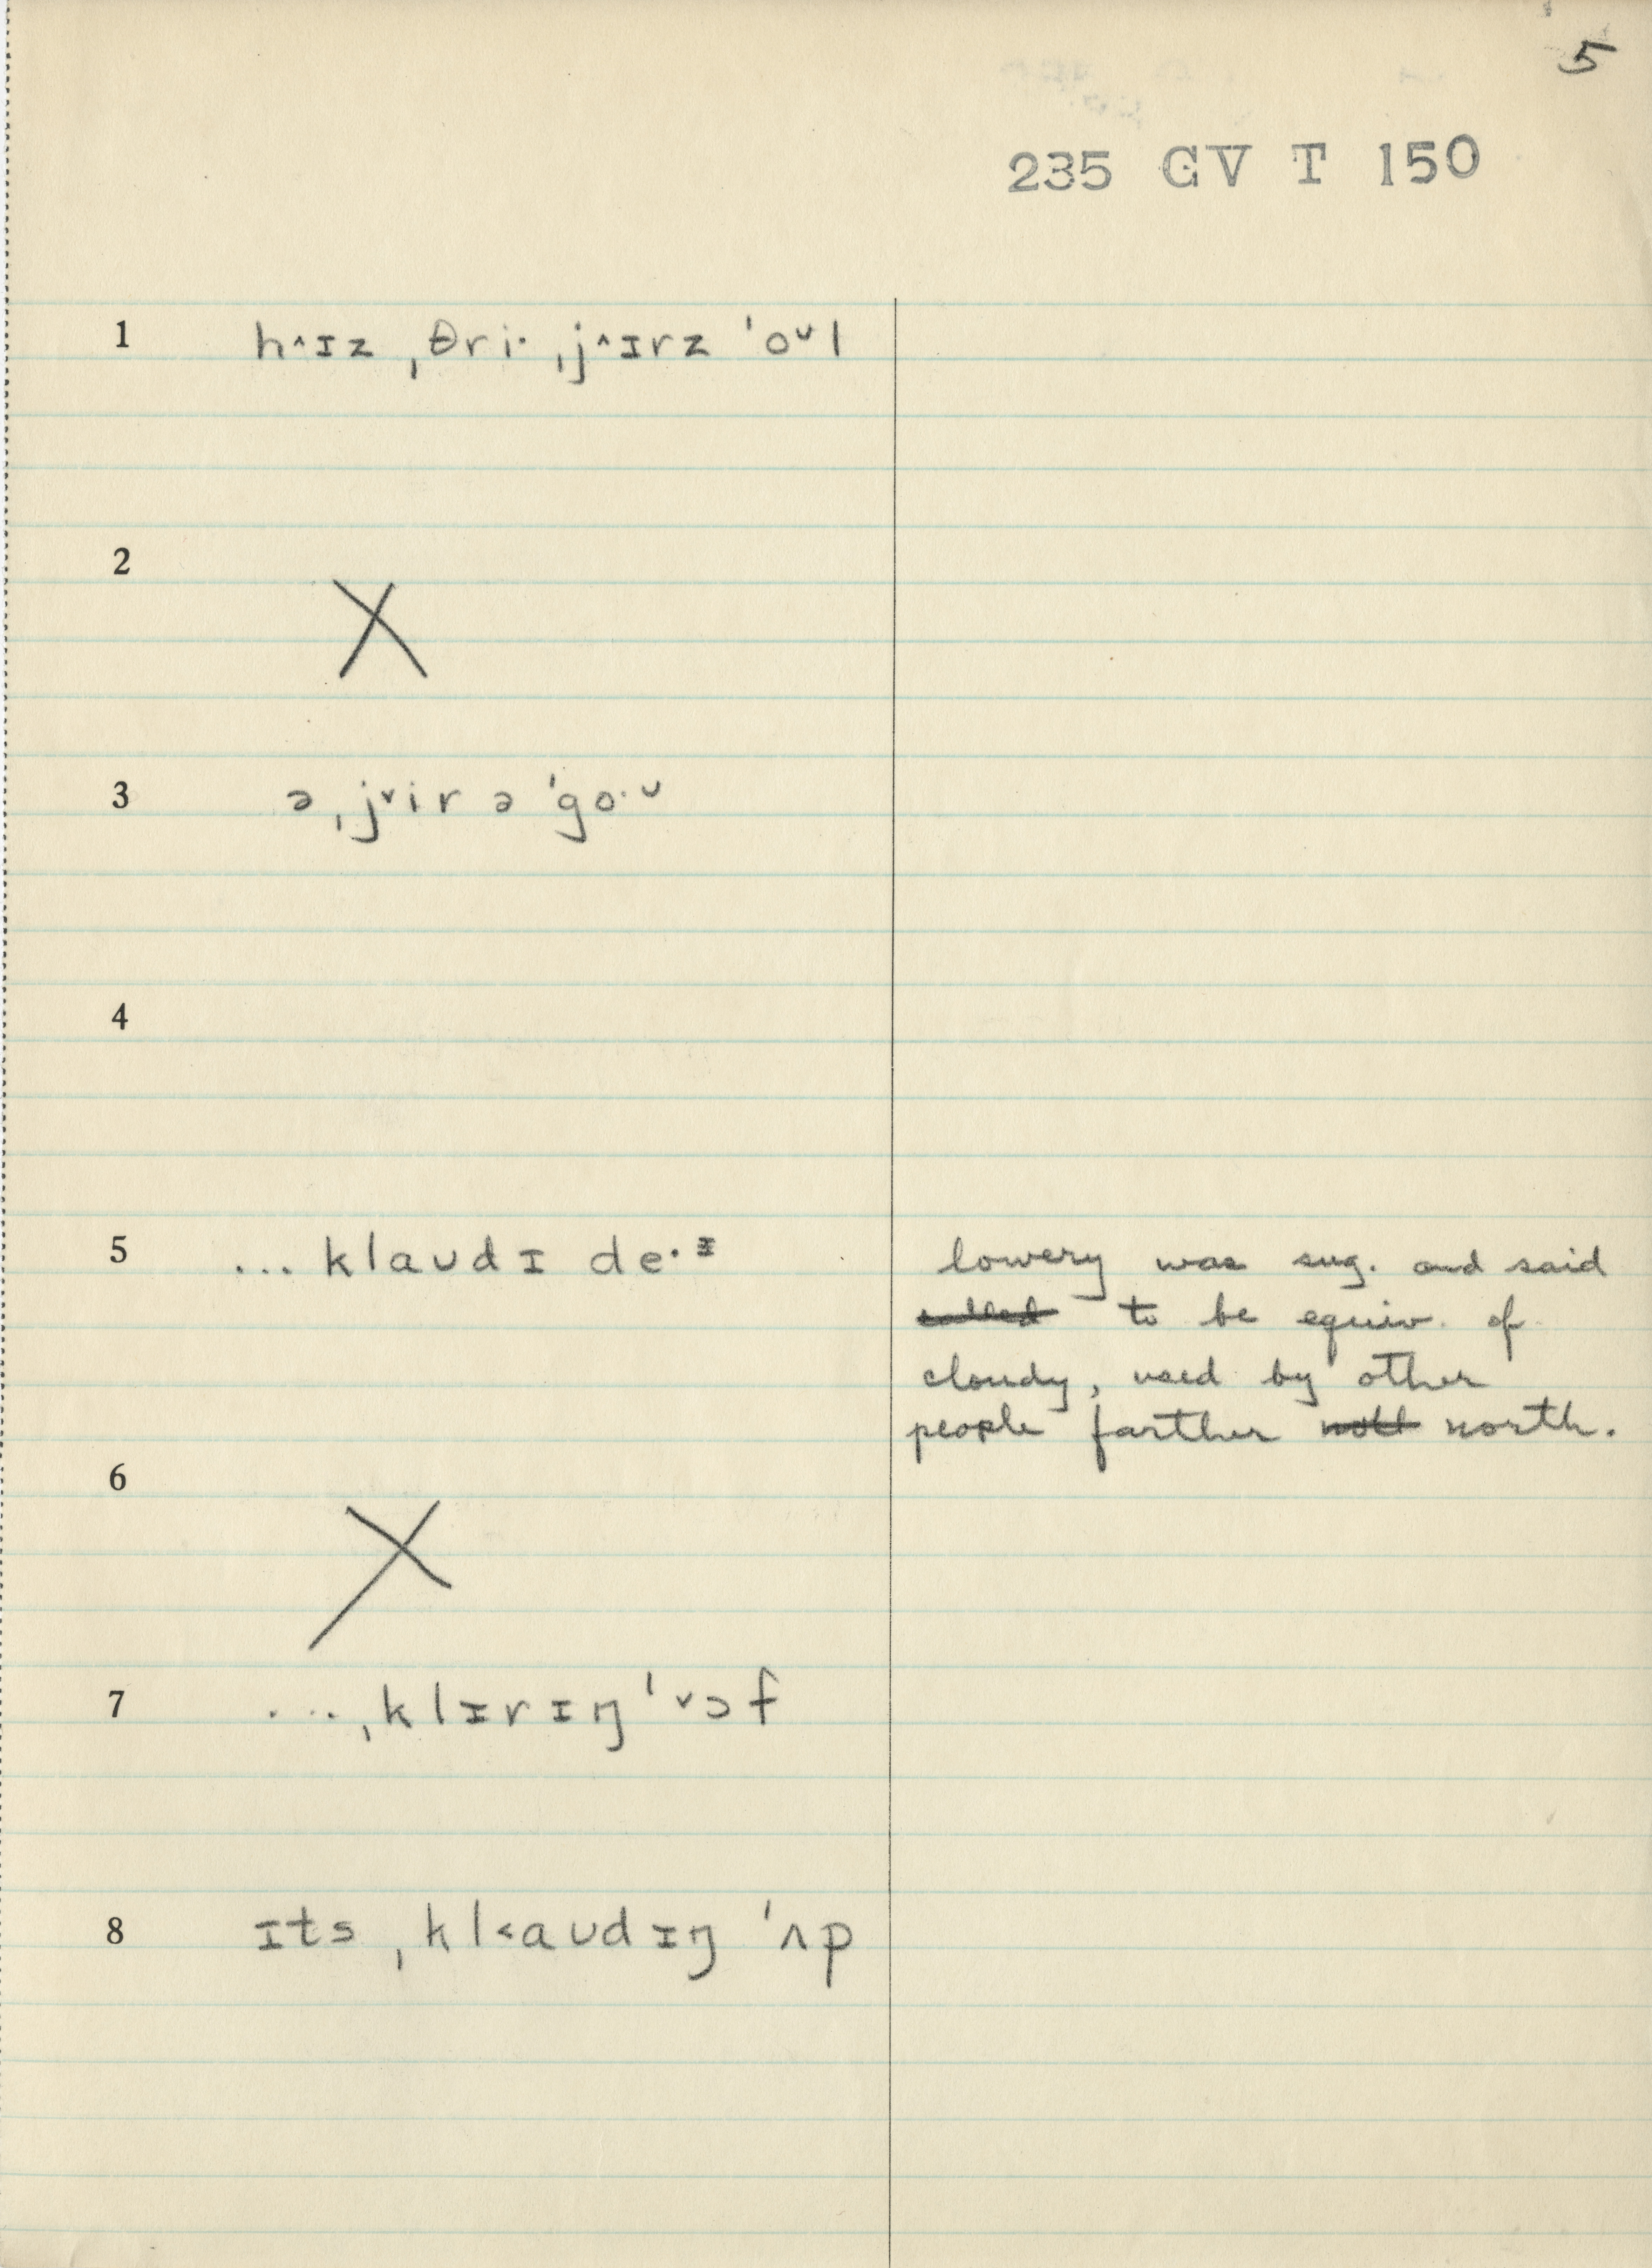 5
235 GV T 150
1 h^ɪz ˌθri· ˌj^ɪrz ˈoᵛl
2 X
3 ə ˌj˅ir ə ˈgo·ᴜ
4
5 ... klaᴜdɪ de·ᶦ lowery was sug. and said
to be equiv. of
cloudy, used by other
people farther north.
6 X
7 ... ˌklɪrɪŋ ˈ˅ɔf
8 ɪts ˌkl˂aᴜdɪŋ ˈʌp